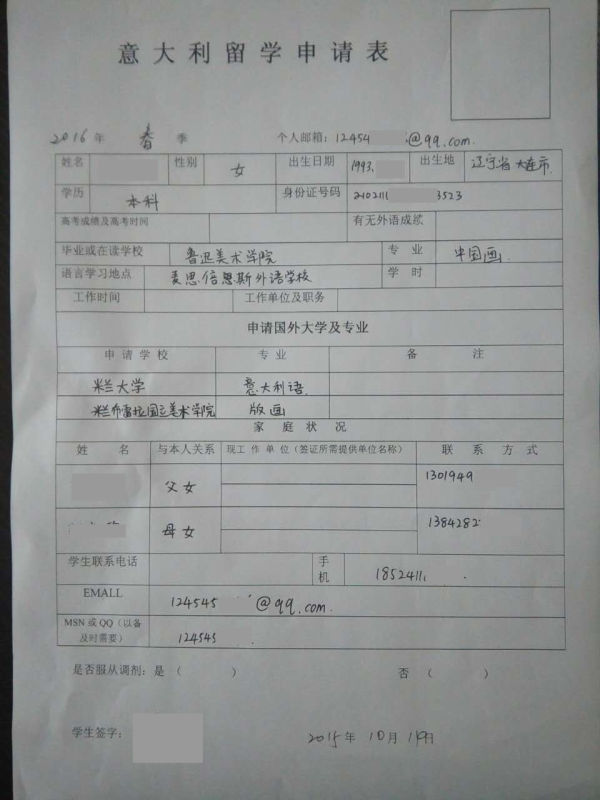 意大利留学申请表
2016 年 春 季 个人邮箱：12454 @qq.com.
姓名 性别 女 出生日期 1993. 出生地 辽宁省大连市.
学历 本科 身份证号码 2102111 3523
高考成绩及高考时间 有无外语成绩
毕业或在读学校 鲁迅美术学院 专业 中国画.
语言学习地点 麦思倍思斯外语学校 学时
工作时间 工作单位及职务
申请国外大学及专业
申请学校 专业 备注
米兰大学 意大利语.
米兰布雷拉国立美术学院 版画
家庭状况
姓名 与本人关系 现工作单位（签证所需提供单位名称） 联系方式
父女 1301949
母女 1384282
学生联系电话 手机 1852411
EMALL 124545 @qq.com.
MSN 或 QQ（以备及时需要） 124545
是否服从调剂：是（ ） 否（ ）
学生签字： 2015年 10月 日